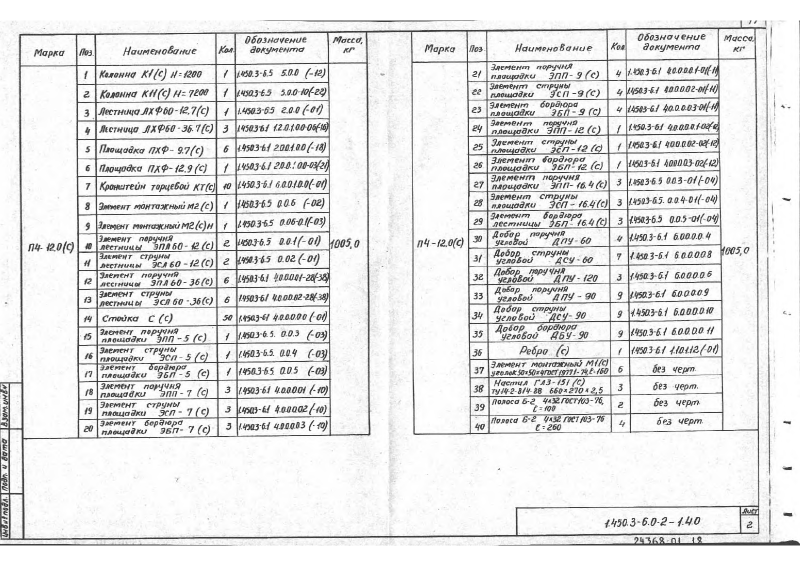 Марка Поз. Наименование Кол. Обозначение документа Масса, кг
П4-12.0(С) 1005,0
1 Колонна К1(С) Н=1200 1 1.450.3-6.5 5.0.0 (-12)
2 Колонна К11(С) Н=7200 1 1.450.3-6.5 5.0.0-10(-22)
3 Лестница ЛХФ60-12.7(С) 1 1.450.3-6.5 2.0.0 (-01)
4 Лестница ЛХФ60-36.7(С) 3 1.450.3-6.1 12.0.1.00-06(-16)
5 Площадка ПХФ-9.7(С) 6 1.450.3-6.1 2.0.0.1.00 (-18)
6 Площадка ПХФ-12.9(С) 1 1.450.3-6.1 2.0.0.1.00-03(-21)
7 Кронштейн торцевой КТ(С) 10 1.450.3-6.1 6.0.0.1.0.0(-01)
8 Элемент монтажный М2(С) 1 1.450.3-6.5 0.0.6 (-02)
9 Элемент монтажный М2(С)Н 1 1.450.3-6.5 0.0.6-01(-03)
10 Элемент поручня лестницы ЭПЛ60-12(С) 2 1.450.3-6.5 0.0.1(-01)
11 Элемент струны лестницы ЭСЛ60-12(С) 2 1.450.3-6.5 0.0.2 (-01)
12 Элемент поручня лестницы ЭПЛ60-36(С) 6 1.450.3-6.1 4.0.0.0.01-28(-38)
13 Элемент струны лестницы ЭСЛ60-36(С) 6 1.450.3-6.1 4.0.0.0.02-28(-38)
14 Стойка С (С) 50 1.450.3-6.1 4.0.0.0.0.0 (-01)
15 Элемент поручня площадки ЭПП-5 (С) 1 1.450.3-6.5. 0.0.3 (-03)
16 Элемент струны площадки ЭСП-5 (С) 1 1.450.3-6.5. 0.0.4 (-03)
17 Элемент бордюра площадки ЭБП-5 (С) 1 1.450.3-6.5. 0.0.5 (-03)
18 Элемент поручня площадки ЭПП-7 (С) 3 1.450.3-6.1 4.0.0.0.01 (-10)
19 Элемент струны площадки ЭСП-7 (С) 3 1.450.3-6.1 4.0.0.0.02 (-10)
20 Элемент бордюра площадки ЭБП-7 (С) 3 1.450.3-6.1 4.0.0.0.03 (-10)
Марка Поз. Наименование Кол. Обозначение документа Масса, кг
П4-12.0(С) 1005,0
21 Элемент поручня площадки ЭПП-9 (С) 4 1.450.3-6.1 4.0.0.0.0.1-01(-11)
22 Элемент струны площадки ЭСП-9 (С) 4 1.450.3-6.1 4.0.0.0.02-01(-11)
23 Элемент бордюра площадки ЭБП-9 (С) 4 1.450.3-6.1 4.0.0.0.03-01(-11)
24 Элемент поручня площадки ЭПП-12 (С) 1 1.450.3-6.1 4.0.0.0.0.1-02(-12)
25 Элемент струны площадки ЭСП-12 (С) 1 1.450.3-6.1 4.0.0.0.02-02(-12)
26 Элемент бордюра площадки ЭБП-12 (С) 1 1.450.3-6.1 4.0.0.0.03-02(-12)
27 Элемент поручня площадки ЭПП-16.4(С) 3 1.450.3-6.5 0.0.3-01(-04)
28 Элемент струны площадки ЭСП-16.4(С) 3 1.450.3-6.5 0.0.4-01(-04)
29 Элемент бордюра лестницы ЭБП-16.4(С) 3 1.450.3-6.5 0.0.5-01(-04)
30 Добор поручня угловой ДПУ-60 4 1.450.3-6.1 6.0.0.0.0.4
31 Добор струны угловой ДСУ-60 7 1.450.3-6.1 6.0.0.0.0.8
32 Добор поручня угловой ДПУ-120 3 1.450.3-6.1 6.0.0.0.0.6
33 Добор поручня угловой ДПУ-90 9 1.450.3-6.1 6.0.0.0.0.9
34 Добор струны угловой ДСУ-90 9 1.450.3-6.1 6.0.0.0.0.10
35 Добор бордюра угловой ДБУ-90 9 1.450.3-6.1 6.0.0.0.0.11
36 Ребро (С) 1 1.450.3-6.1 1.1.0.1.2 (-01)
37 Элемент монтажный М1(С) уголок50×50×4ГОСТ19771-74,ℓ-160 6 без черт.
38 Настил ГЛЗ-151 (С) ТУ14-2-814-88 660×270×2,5 3 без черт.
39 Полоса Б-2 4×32 ГОСТ103-76, ℓ=100 2 без черт.
40 Полоса Б-2 4×32 ГОСТ103-76 ℓ=260 4 без черт.
1.450.3-6.0-2-1.40
Лист
2
24368-01 18
Инв№подл. Подп. и дата Взам.инв№